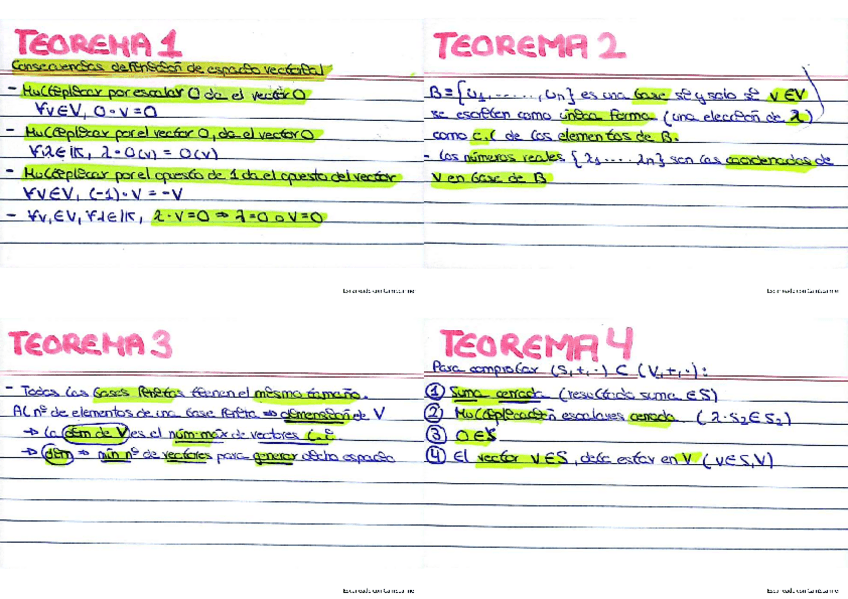 TEOREMA 1
Consecuencias definición de espacio vectorial
- Multiplicar por escalar 0 da el vector 0
∀v∈V, 0·v=0
- Multiplicar por el vector 0, da el vector 0
∀λ∈IK, λ·0(v) = 0(v)
- Multiplicar por el opuesto de 1 da el opuesto del vector
∀v∈V, (-1)·v = -v
- ∀v,∈V, ∀λ∈IK, λ·v=0 ⇒ λ=0 o v=0
Escaneado con CamScanner
TEOREMA 2
B={u1,.....,un} es una base si y solo si v∈V
se escriben como única forma (una elección de λ)
como c.l de los elementos de B.
- Los números reales {λ1....λn} son las coordenadas de
V en base de B
Escaneado con CamScanner
TEOREMA 3
- Todas las bases finitas tienen el mismo tamaño.
Al nº de elementos de una base finita ⇒ dimensión de V
→ La dim de V es el núm max de vectores l.i.
→ dim ⇒ mín nº de vectores para generar dicho espacio
Escaneado con CamScanner
TEOREMA 4
Para comprobar (S,+,·) ⊂ (V,+,·):
① Suma cerrada (resultado suma ∈S)
② Multiplicación escalares cerrada (λ·s2∈S2)
③ 0∈S
④ El vector v∈S, debe estar en V (v∈S,V)
Escaneado con CamScanner